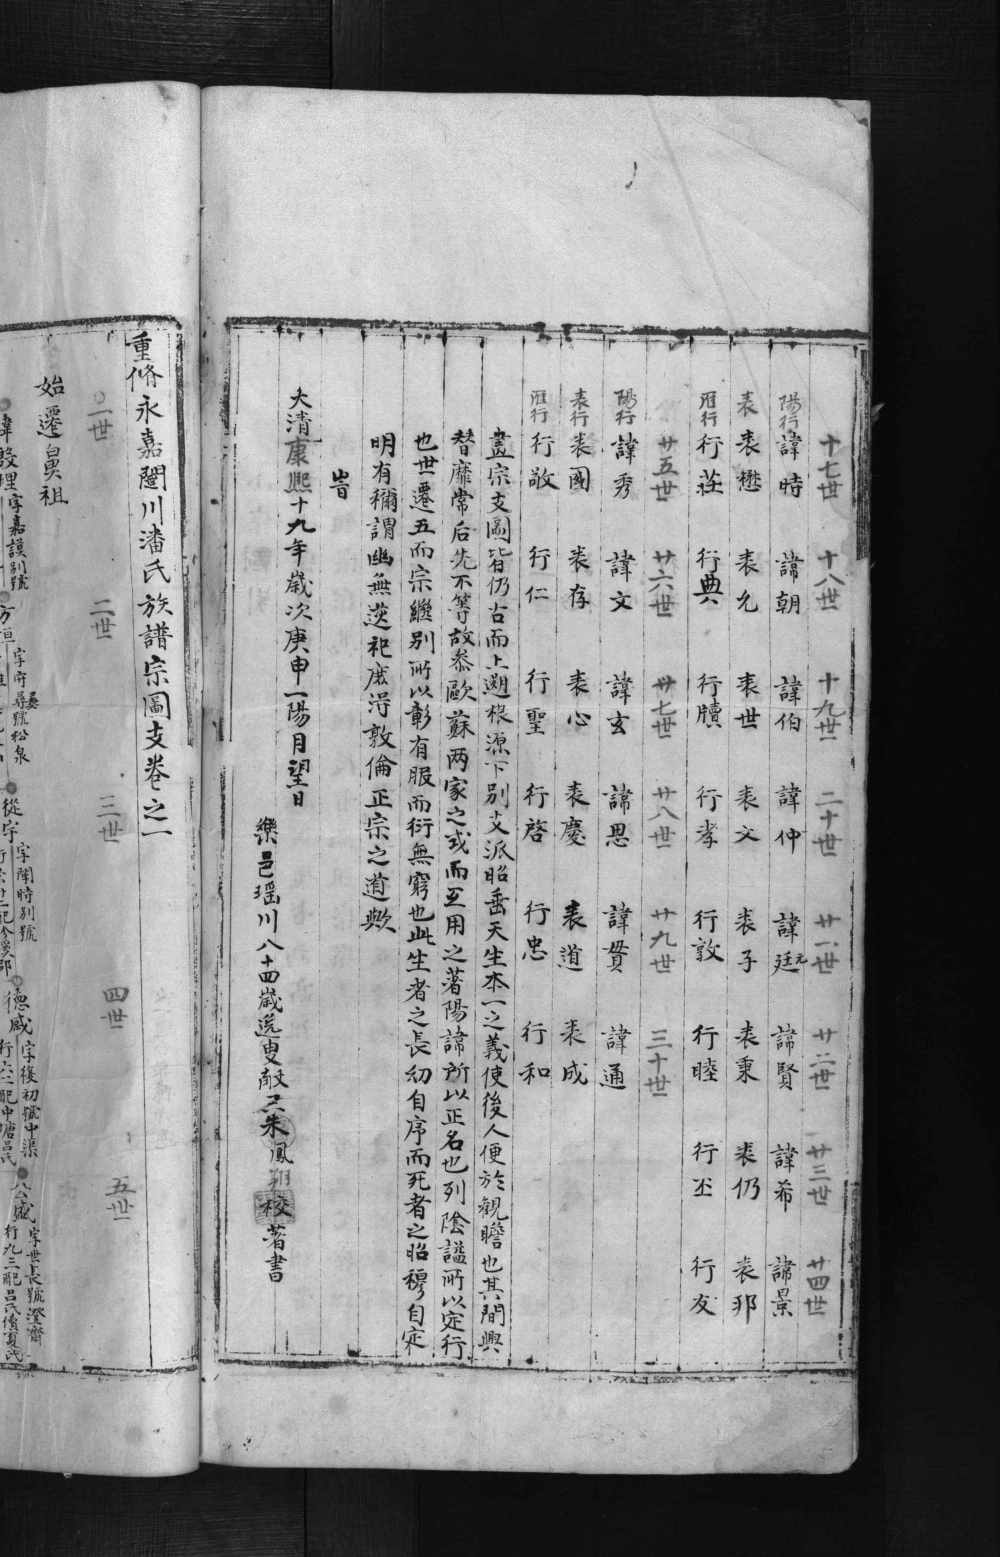 十七世 十八世 十九世 二十世 廿一世 廿二世 廿三世 廿四世
陽行 諱時 諱朝 諱伯 諱仲 諱廷元 諱賢 諱希 諱景
表 表懋 表允 表世 表文 表子 表秉 表仍 表邦
雁行 行莊 行典 行牘 行孝 行敦 行睦 行丕 行友
廿五世 廿六世 廿七世 廿八世 廿九世 三十世
陽行 諱秀 諱文 諱玄 諱思 諱貫 諱通
表行 表國 表存 表心 表慶 表道 表成
雁行 行敬 行仁 行聖 行啓 行忠 行和
盖宗支圖皆仍古而上遡根源下別支派昭垂天生本一之義使後人便於觀瞻也其間興
替靡常后先不等故叅歐蘇两家之式而互用之著陽諱所以正名也列陰謚所以定行
也世遷五而宗繼別所以彰有服而衍無窮也此生者之長幼自序而死者之昭穆自定
明有稱謂幽無𬽦祀庶淂敦倫正宗之道歟
旹
大清康熙十九年歲次庚申一陽月望日
樂邑瑶川八十四歲逸叟 朱鳳翔校著書
重脩永嘉 川潘氏族譜宗圖支卷之一
一世 二世 三世 四世 五世
始遷舅祖
諱殷理 字嘉謨別號
方 字府尋號松泉
從字 字闡時別號
德威 字復初號中渠 配中塘呂氏
公盛 字世長號澄齋 行九三配呂氏